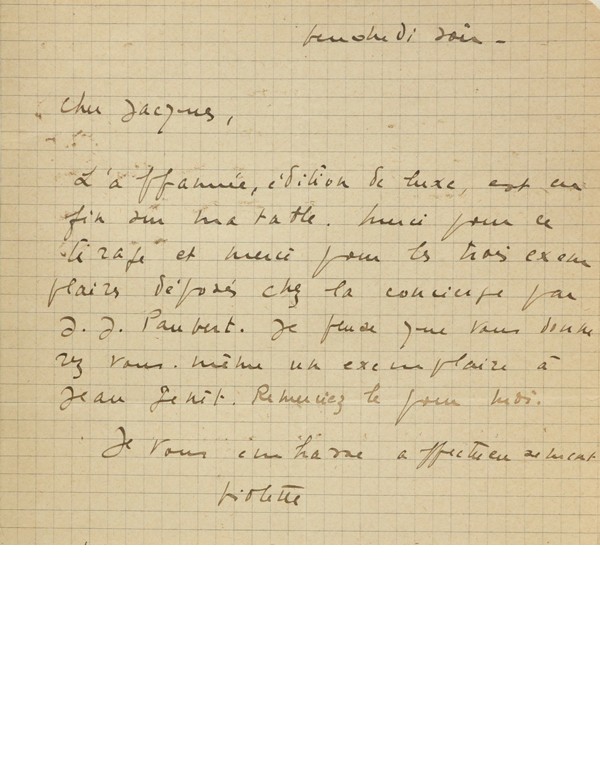 vendredi soir -
Cher Jacques,
L'affamée, édition de luxe, est en
fin sur ma table. Merci pour ce
tirage et merci pour les trois exem
plaires déposés chez la concierge par
J. J. Pauvert. Je pense que vous donne
rez vous-même un exemplaire à
Jean Genêt. Remerciez le pour moi.
Je vous embrasse affectueusement
Violette